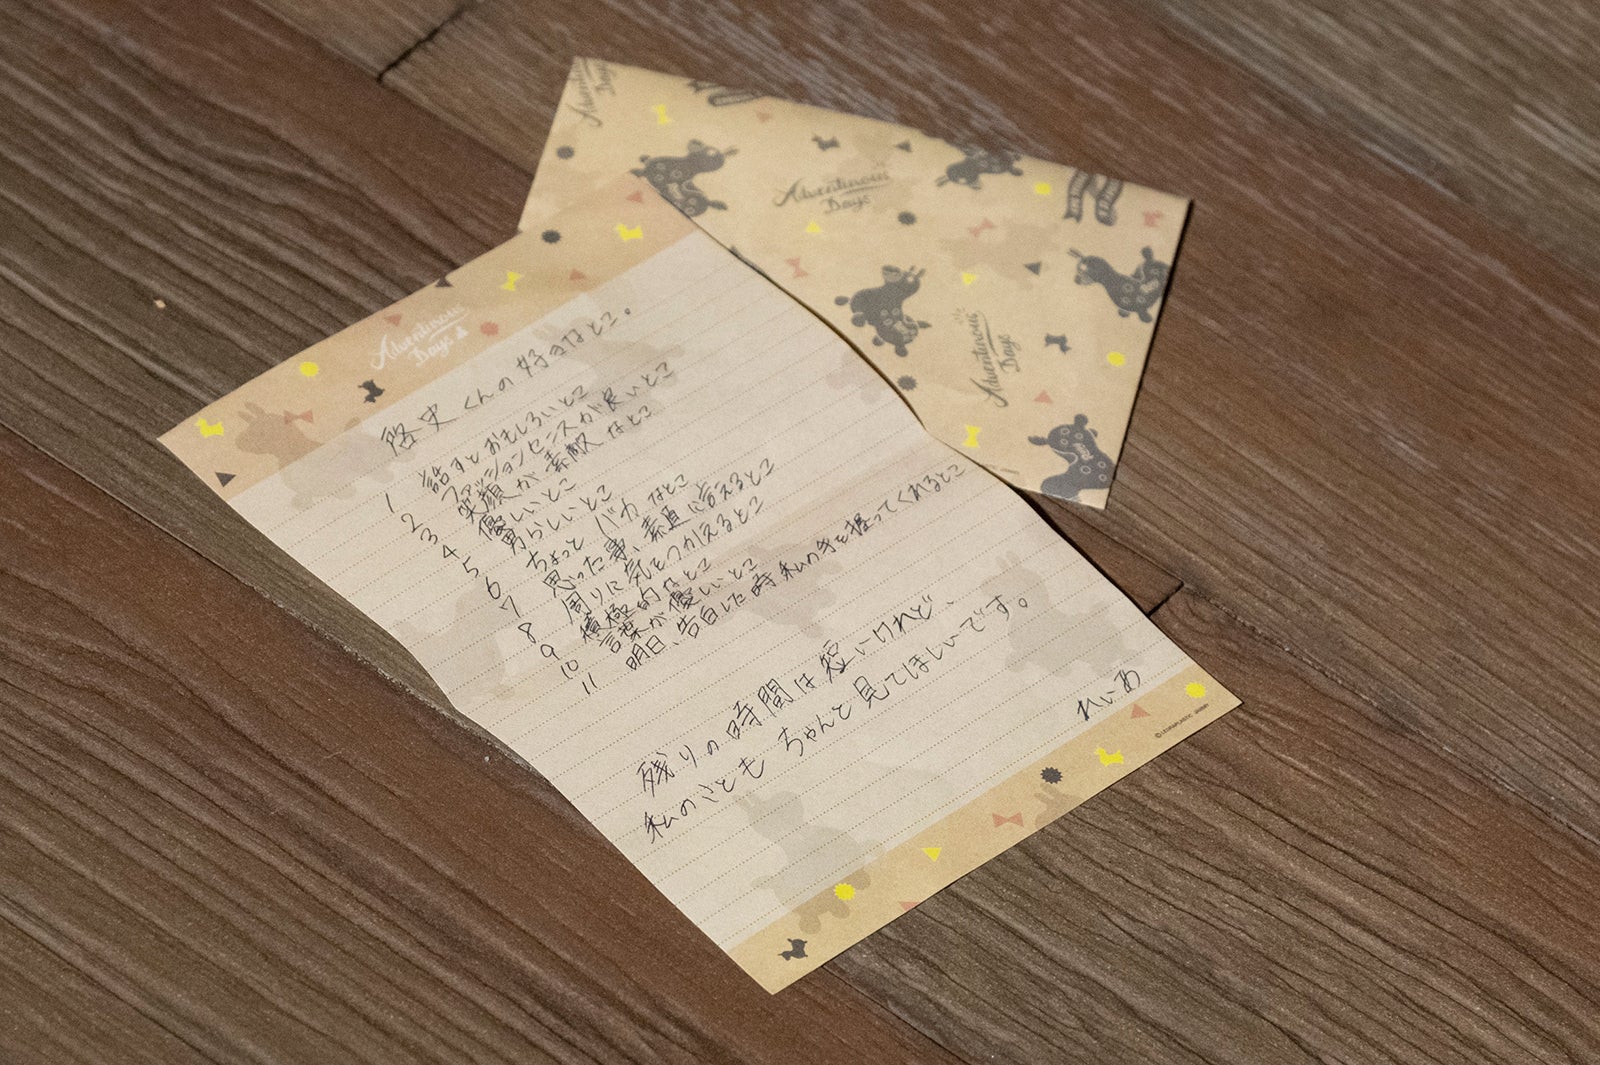 Adventurous
Days
Adventurous
Days
Adventurous
Days
Adventurous
Days
啓史くんの好きなとこ。
1 話すとおもしろいとこ
2 ファッションセンスが良いとこ
3 笑顔が素敵なとこ
4 優しいとこ
5 男らしいとこ
6 ちょっとバカなとこ
7 思った事、素直に言えるとこ
8 周りに気をつかえるとこ
9 積極的なとこ
10 言葉が優しいとこ
11 明日、告白した時私の手を握ってくれるとこ
残りの時間は短いけれど、
私のこともちゃんと見てほしいです。
れいあ